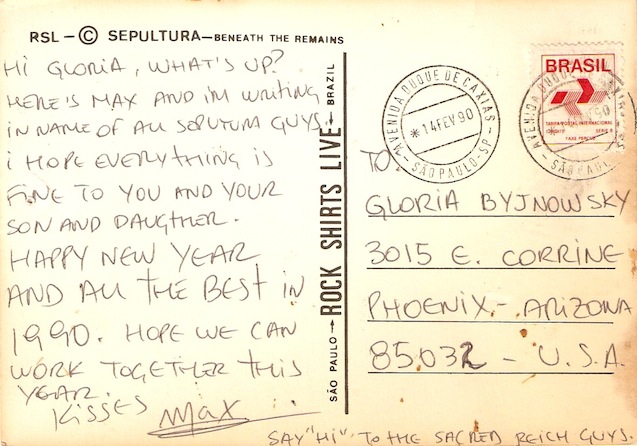 RSL – © SEPULTURA — BENEATH THE REMAINS
Hi GLORIA, WHAT'S UP?
HERE'S MAX AND i'M WRITING
IN NAME OF ALL SEPUTURA GUYS.
i HOPE EVERYTHING IS
FINE TO YOU AND YOUR
SON AND DAUGHTER.
HAPPY NEW YEAR
AND ALL THE BEST IN
1990. HOPE WE CAN
WORK TOGETHER THIS
YEAR.
KISSES MAX
SÃO PAULO → ROCK SHIRTS LIVE ← BRAZIL
AVENIDA DUQUE DE CAXIAS
*14FEV90
SÃO PAULO-SP
BRASIL
TARIFA POSTAL INTERNACIONAL
TO:
GLORIA BYJNOWSKY
3015 E. CORRINE
PHOENIX - ARIZONA
85032 - U.S.A.
SAY "Hi" TO THE SACRED REICH GUYS.